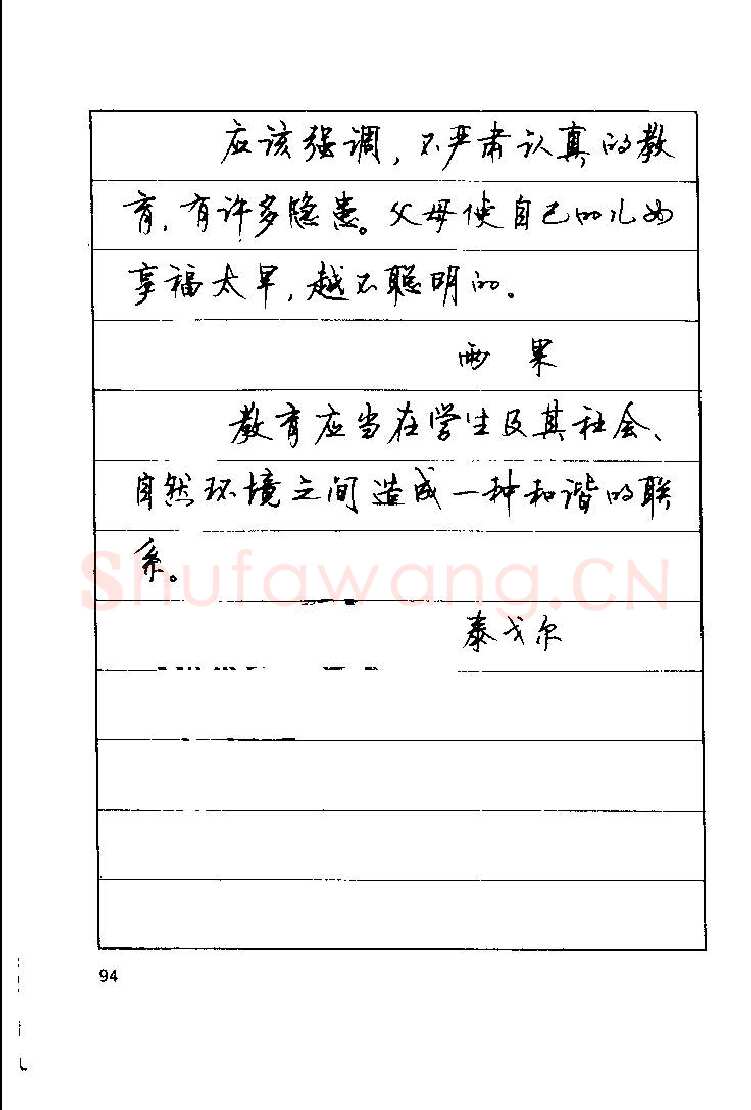 应该强调，不严肃认真的教
育，有许多隐患。父母使自己的儿女
享福太早，越不聪明的。
雨果
教育应当在学生及其社会、
自然环境之间造成一种和谐的联
系。
Shufawang.CN
泰戈尔
94